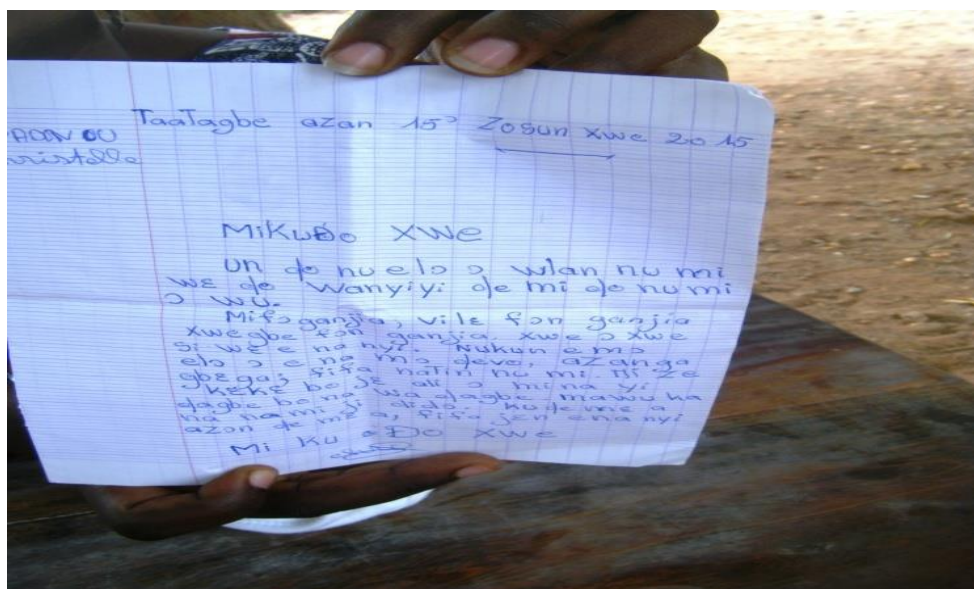 TaaTagbe azan 15ᵓ Zosun xwe 2015
ristelle
MiKuƉo XWe
Un ɖo nu elɔ ɔ wlan nu mi
wɛ ɖo wanyiyi ɖe mi ɖo nu mi
ɔ wu.
Mifɔganjia, vilɛ fɔn ganjia
xwegbe fɔn ganjia xwe ɔ xwe
si wɛ e na nyi. Nukun e mɔ
elɔ ɔ e na mɔ ɖevo, azanga
gbɛga, fifa ni tin nu mi Mi ze
kɛkɛ bo jɛ ali ɔ mi na yi
ɖagbe bo na wa ɖagbe mawu ka
na na mi ji ɖiɖo. Ku ɖe me a
azɔn ɖe me a, fifa jɛn e na nyi
Mi Ku Ɖo Xwe